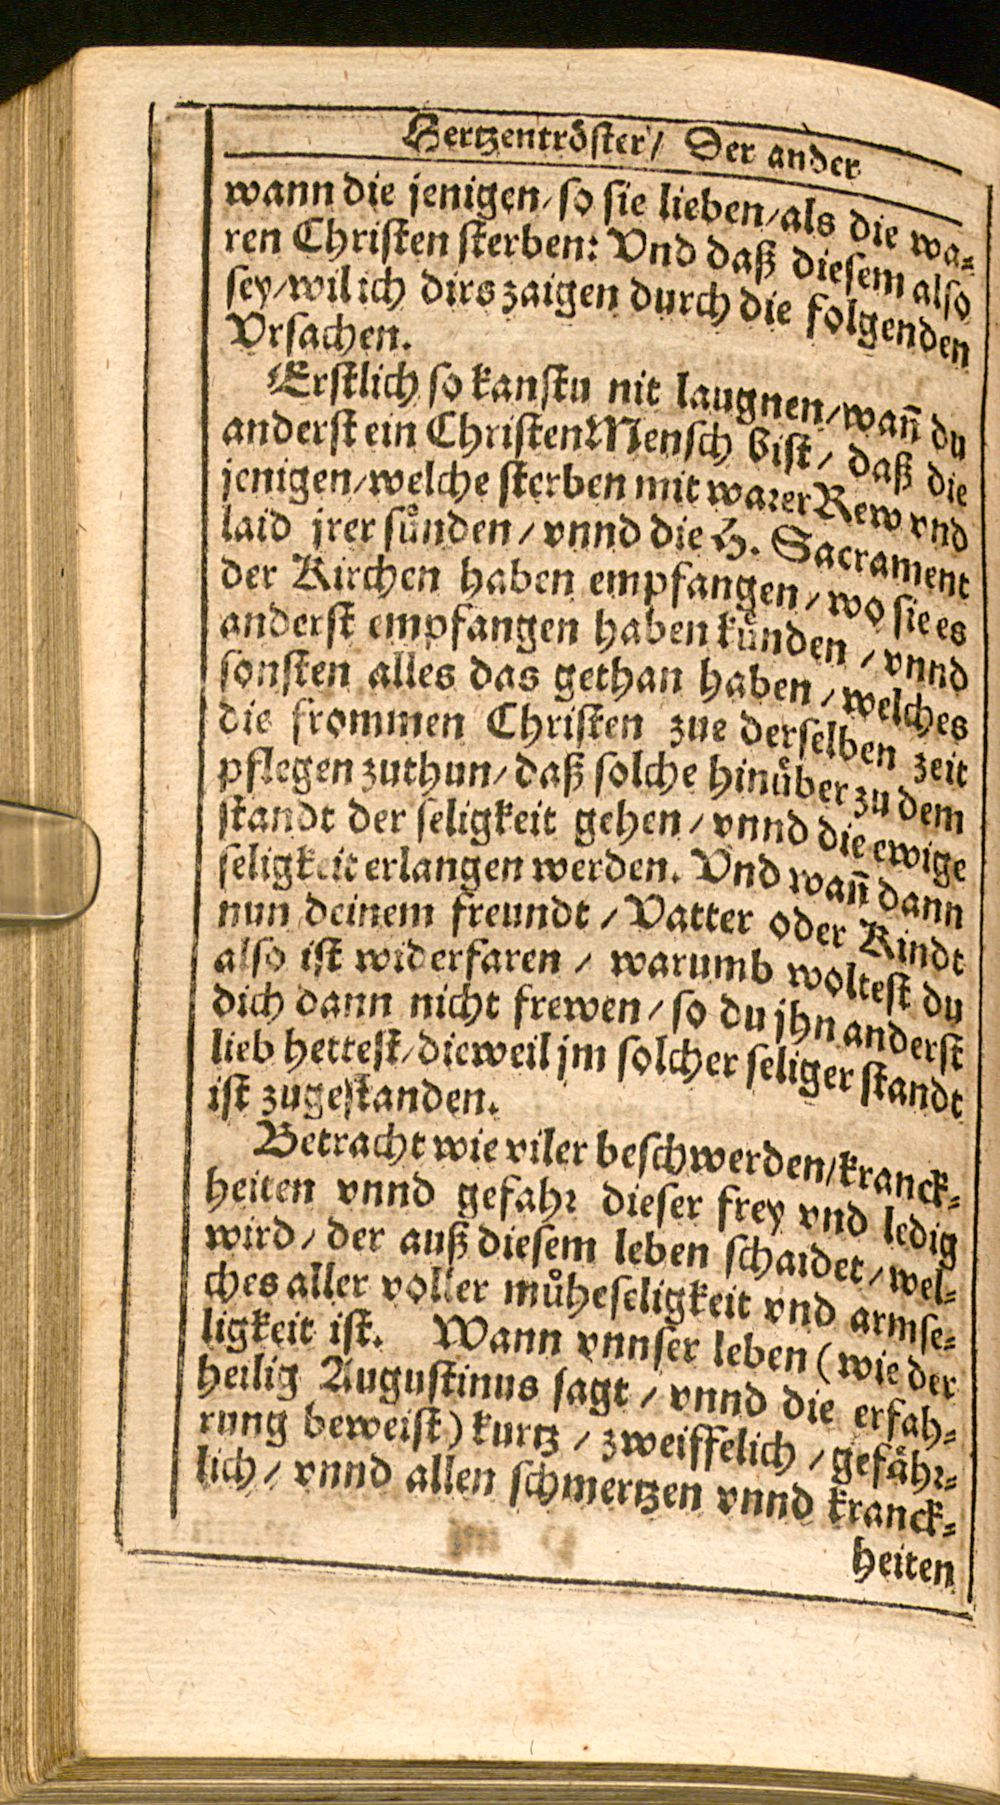 Hertzentröster / Der ander
wann die jenigen / so sie lieben / als die wa⸗
ren Christen sterben: Vnd daß diesem also
sey / wil ich dirs zaigen durch die folgenden
Vrsachen.
Erstlich so kanstu nit laugnen / wañ du
anderst ein Christen Mensch bist / daß die
jenigen / welche sterben mit warer Rew vnd
laid jrer suͤnden / vnnd die H. Sacrament
der Kirchen haben empfangen / wo sie es
anderst empfangen haben kuͤnden / vnnd
sonsten alles das gethan haben / welches
die frommen Christen zue derselben zeit
pflegen zuthun / daß solche hinuͤber zu dem
standt der seligkeit gehen / vnnd die ewige
seligkeit erlangen werden. Vnd wañ dann
nun deinem freundt / Vatter oder Kindt
also ist widerfaren / warumb woltest du
dich dann nicht frewen / so du jhn anderst
lieb hettest / dieweil jm solcher seliger standt
ist zugestanden.
Betracht wie viler beschwerden / kranck⸗
heiten vnnd gefahꝛ dieser frey vnd ledig
wird / der auß diesem leben schaidet / wel⸗
ches aller voller muͤheseligkeit vnd armse⸗
ligkeit ist. Wann vnnser leben (wie der
heilig Augustinus sagt / vnnd die erfah⸗
rung beweist) kurtz / zweiffelich / gefaͤhꝛ⸗
lich / vnnd allen schmertzen vnnd kranck⸗
heiten